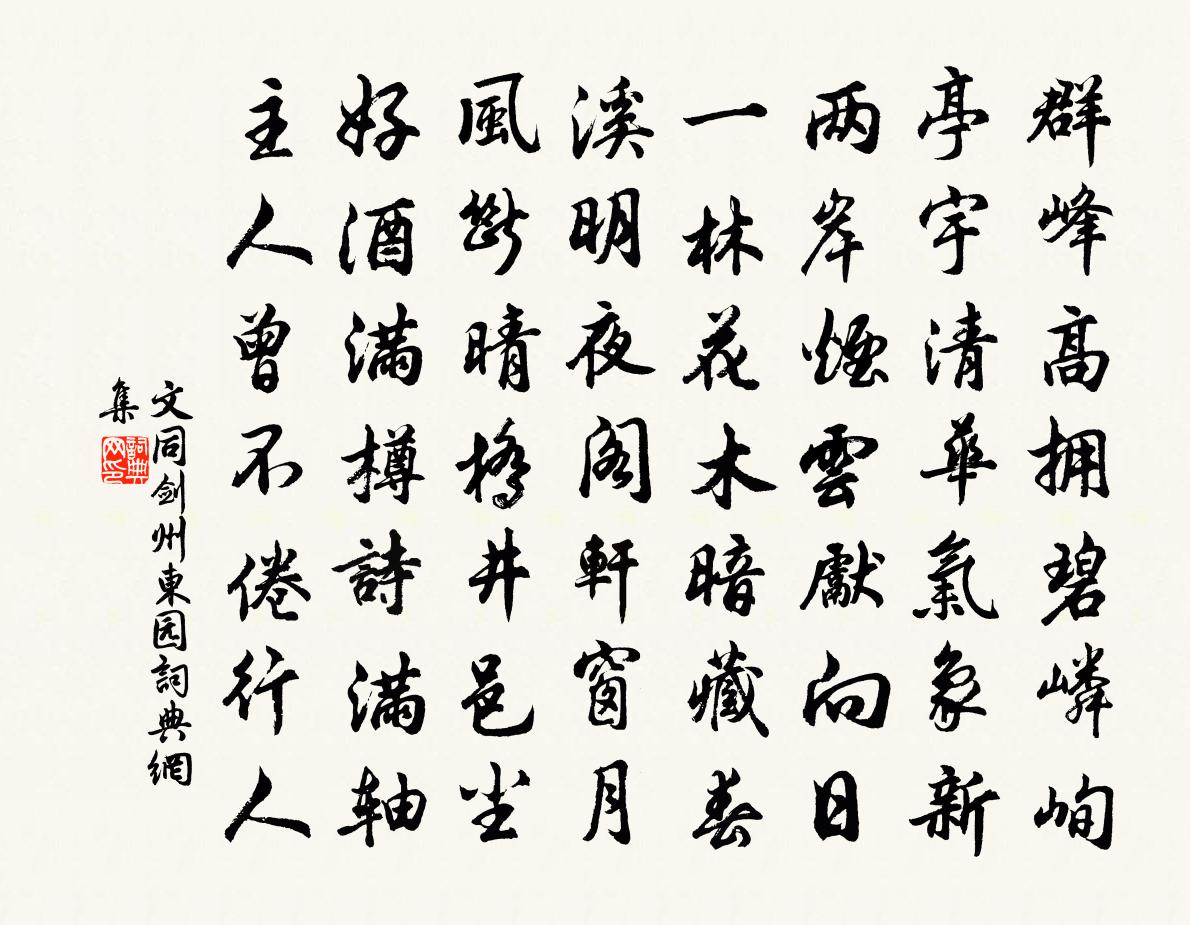 群峰高拥碧嶙峋
亭宇清華氣象新
两岸煙雲獻向日
一林花木暗藏春
溪明夜阁軒窗月
風斷晴橋井邑尘
好酒满樽詩满轴
主人曾不倦行人
文同剑州東园詞典網
集
詞典网印